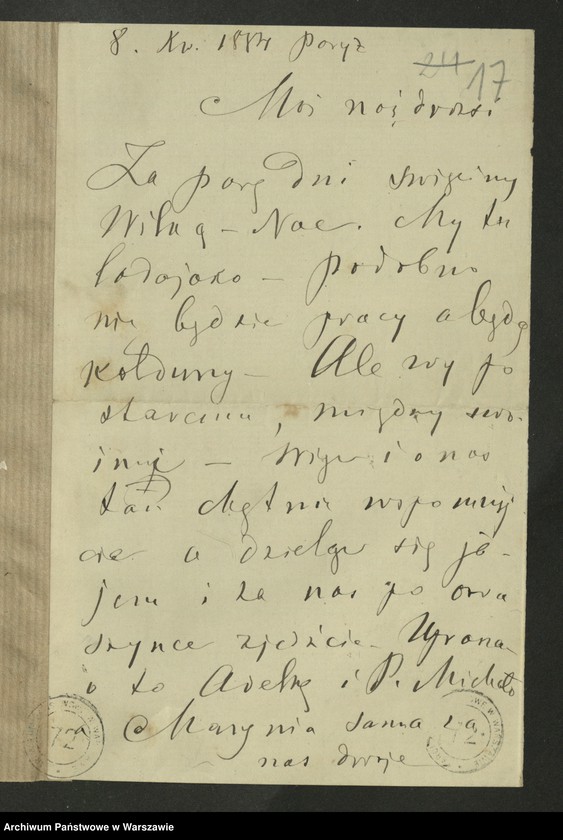 8. Kw. 1884 Paryż
24 17
Moi najdrożsi
Za parę dni święcimy
Wilką – Noc. My tu
ladajako – podobno
nie będzie pracy a będą
kołduny – Ale wy po
staremu, między swo-
imi – Więc i o nas
tam chętnie wspomnij
cie a dzieląc się ja-
jem i za nas po
szynce zjedźcie – Uprasza-
to Adelkę i P. Michało
a Marynia sama za
nas dwoje
Archiwum Państwowe w Warszawie